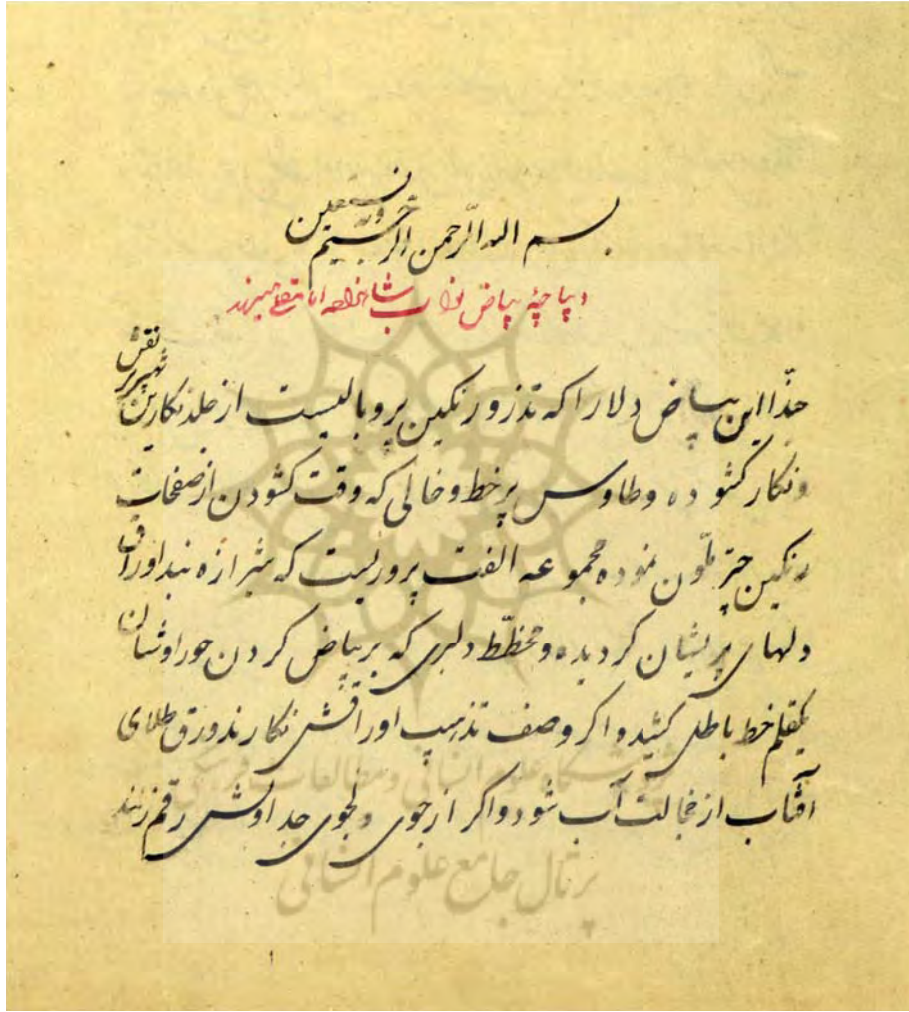 بسم الله الرّحمن الرحیم وبه نستعین
دیباچهٔ بیاض نواب
حبّذا این بیاض دلارا که تذرو رنکین پر و بالیست از خلد نکارین شهپر پر نقش
و نکار کشوده و طاوس پر خط و خالی که وقت کشودن از صفحات
رنکین چتر ملّون نموده مجموعه الفت پروریست که شیرازه بند اوراق
دلهای پریشان کردیده و مخطّط دلبری که بر بیاض کردن حوراوشان
یکقلم خط باطل کشیده و اکر وصف تذهیب اوراقش نکارند ورق طلای
آفتاب از خجالت آب شود و اکر از جوی دلجوی جداولش رقم زنند
پژوهشگاه علوم انسانی و مطالعات فرهنگی
پرتال جامع علوم انسانی